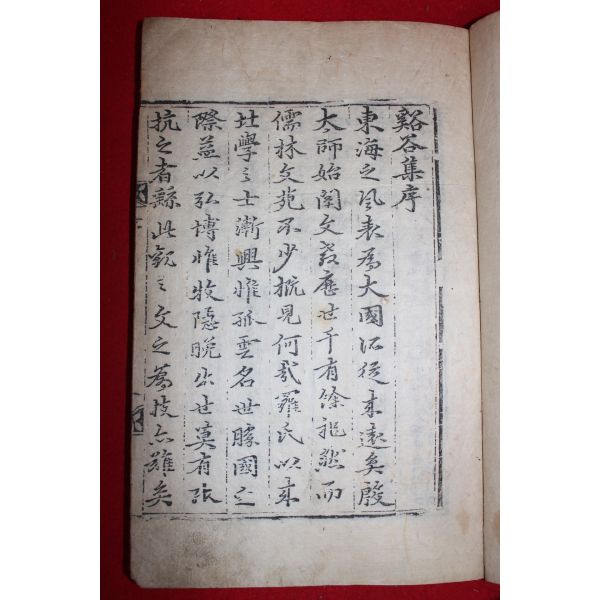 谿谷集序
東海之風表爲大國所從來遠矣殷
太師始闡文敎歷世千有餘祀然而
儒林文苑不少槪見何哉羅氏以來
北學之士漸興惟孤雲名世勝國之
際益以弘博惟牧隱晚出世莫有
抗之者繇此觀之文之爲技亦難矣